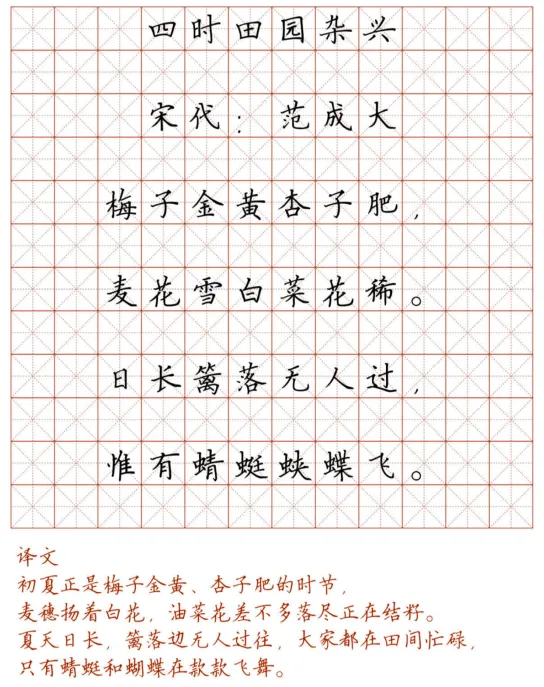 四时田园杂兴
宋代：范成大
梅子金黄杏子肥，
麦花雪白菜花稀。
日长篱落无人过，
惟有蜻蜓蛱蝶飞。
译文
初夏正是梅子金黄、杏子肥的时节，
麦穗扬着白花，油菜花差不多落尽正在结籽。
夏天日长，篱落边无人过往，大家都在田间忙碌，
只有蜻蜓和蝴蝶在款款飞舞。